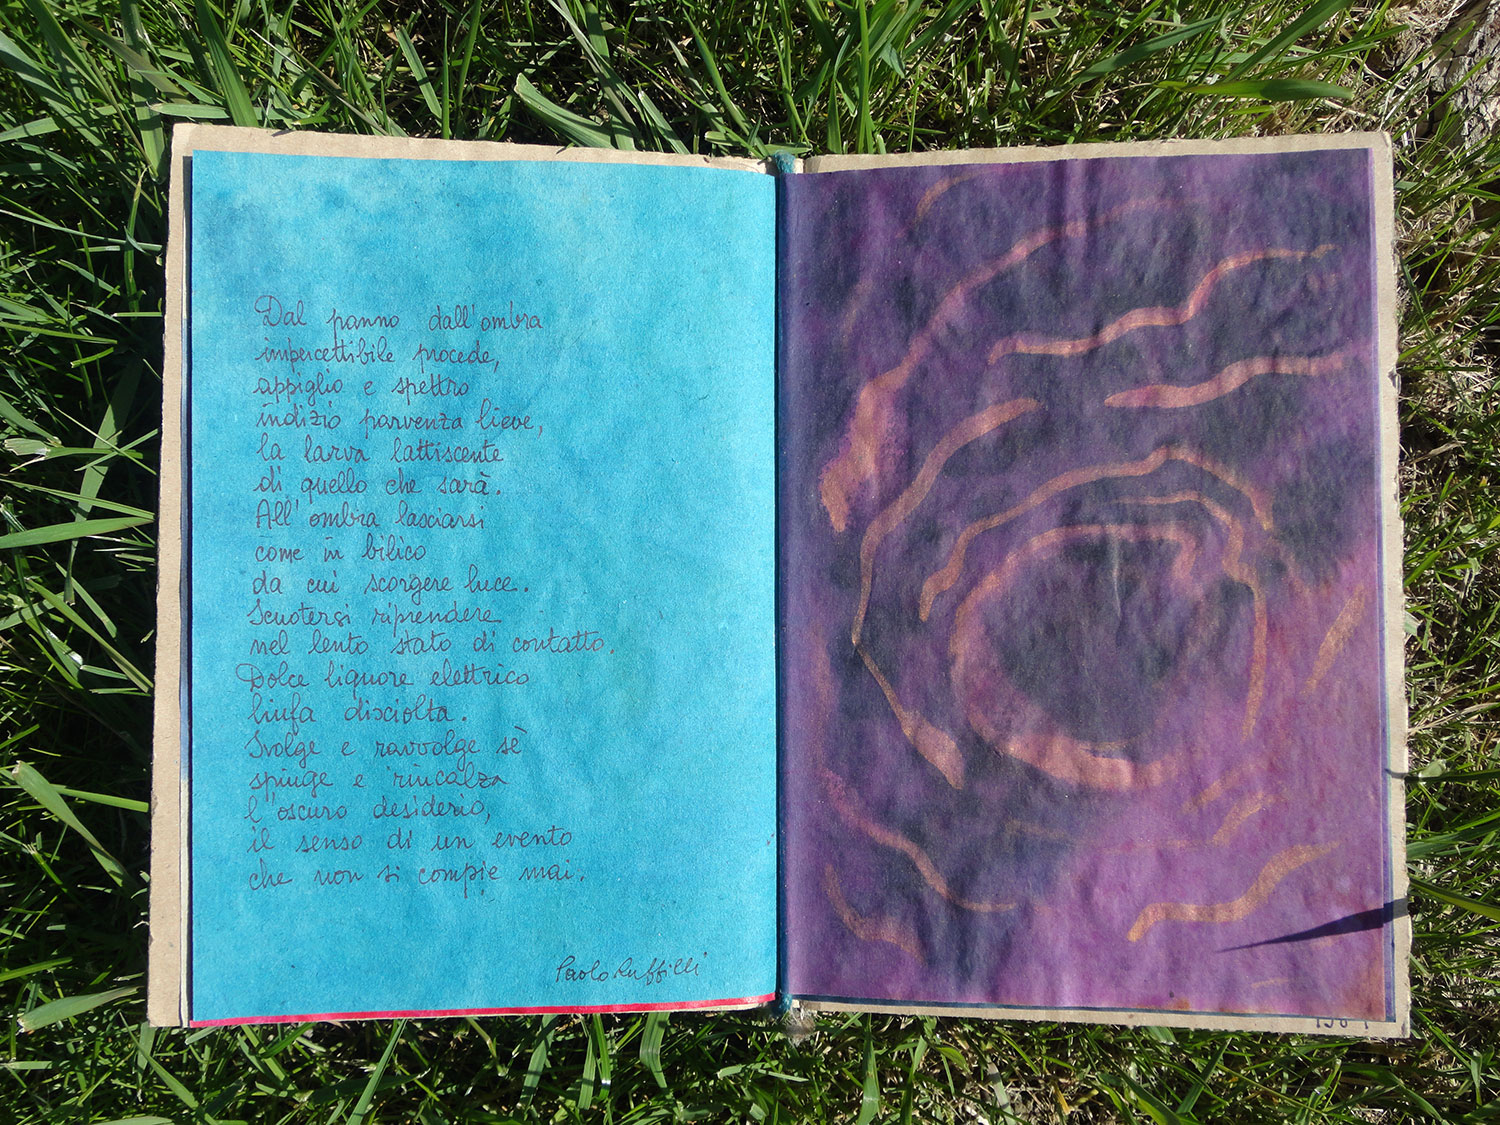 Dal panno dall'ombra
impercettibile procede,
appiglio e spettro
indizio parvenza lieve,
la larva lattiscente
di quello che sarà.
All'ombra lasciarsi
come in bilico
da cui scorgere luce.
Scuotersi riprendere
nel lento stato di contatto.
Dolce liquore elettrico
linfa disciolta.
Svolge e ravvolge sè
spinge e rincalza
l'oscuro desiderio,
il senso di un evento
che non si compie mai.
Paolo Ruffilli